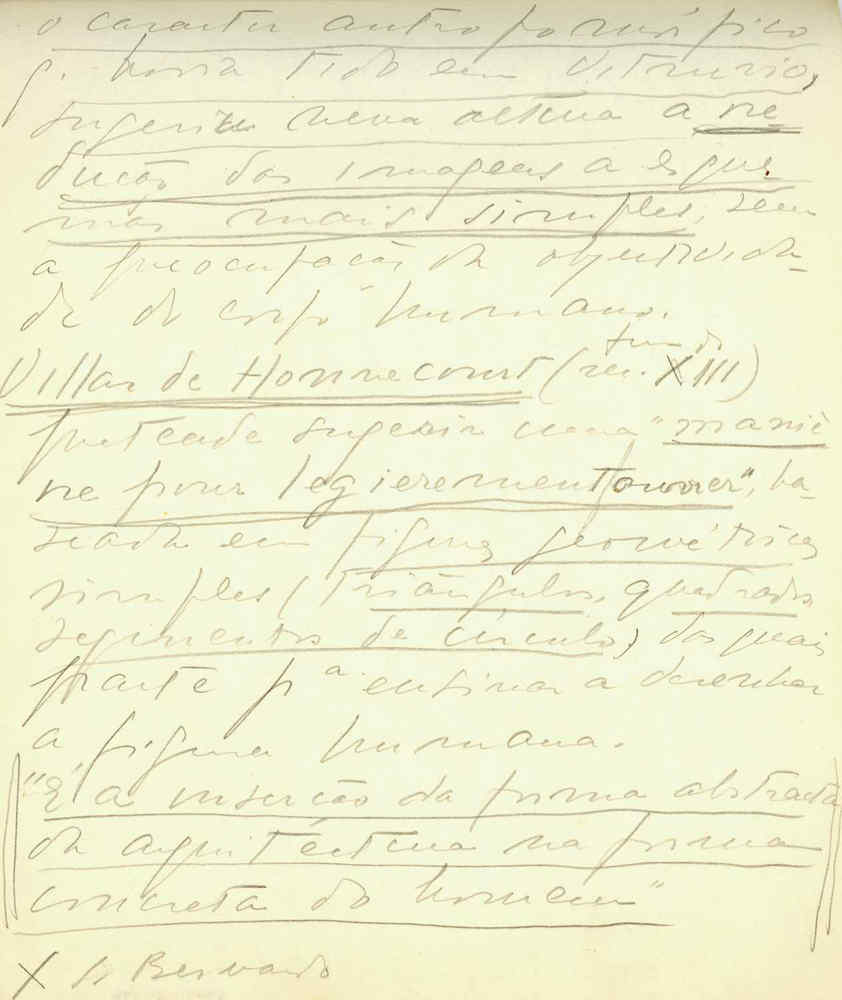 o caracter antropomórfico
q. havia tido em Vitruvio,
sugeriu nesta altura a re
dução das imagens a esque
mas mais simples, sem
a preocupação da objectivida-
de do corpo humano.
Villar de Honnecourt (séc. XIII)
pretende sugerir uma "maniè
re pour legierement ouvrer", ba-
seada em figuras geométricas
simples (triângulos, quadrados
segmentos de círculo), dos quais
parte pª ensinar a desenhar
a figura humana.
"É a inserção da forma abstracta
da arquitectura na forma
concreta do homem"
X S. Bernardo